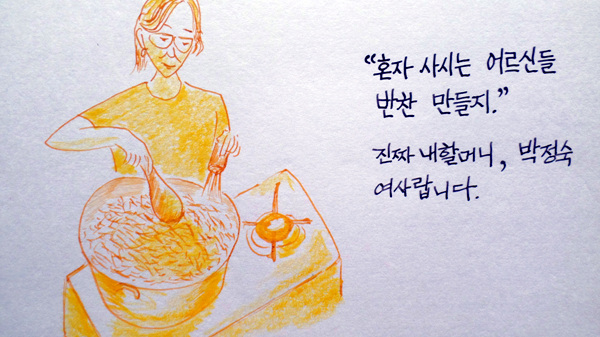 “혼자 사시는 어르신들
반찬 만들지.”
진짜 내할머니, 박정숙
여사랍니다.